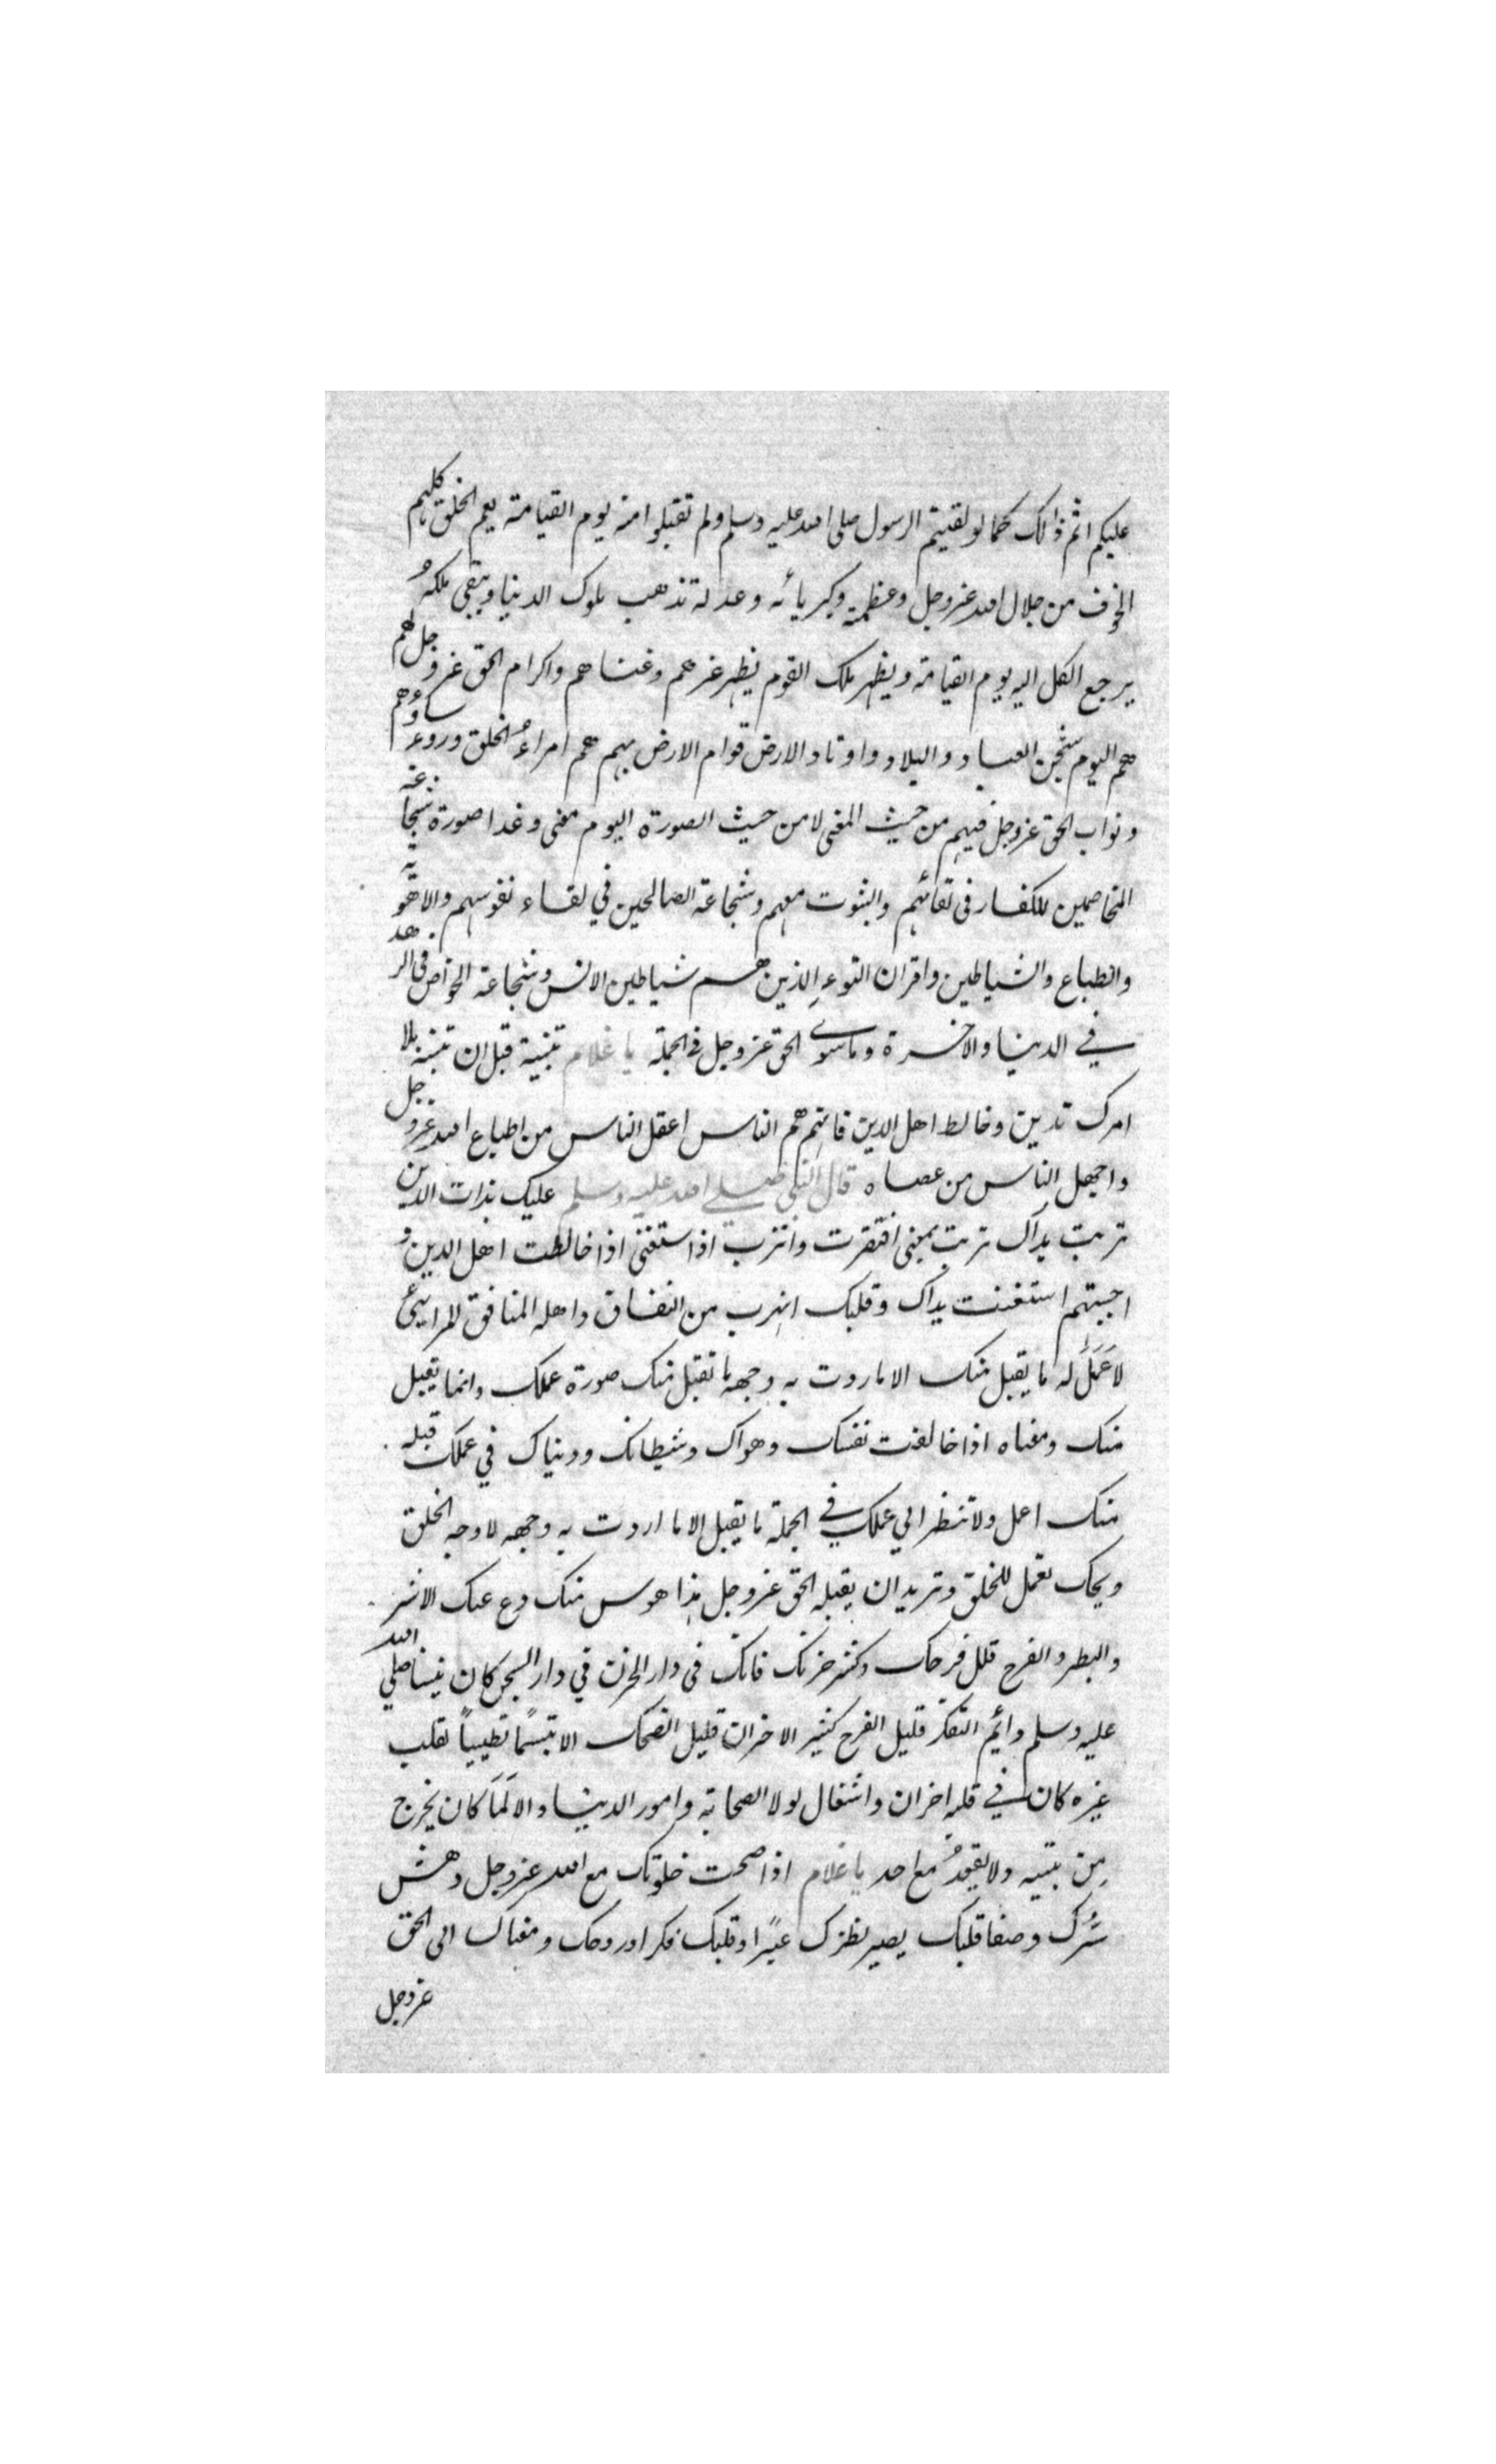 عليكم اثم ذالك كما لو لقيتم الرسول صلى الله عليه وسلم ولم تقبلوا منه يوم القيامة يعم الخلق كلهم
الخوف من جلال الله عز وجل وعظمته وكبريائه وعدله تذهب ملوك الدنيا ويبقى ملكهُ
يرجع الكل اليه يوم القيامة ويظهر ملك القوم يظهر عزهم وغناهم واكرام الحق عز وجل لهم
هم اليوم شحن العباد والبلاد واوتاد الارض قوام الارض بهم هم امراءُ الخلق وروءساؤهم
ونواب الحق عز وجل فيهم من حيث المعنى لا من حيث الصورة اليوم معنى وغدا صورة شجاعة
المخاصمين للكفار في لقائهم والثبوت معهم وشجاعة الصالحين في لقاء نفوسهم والاهوية
والطباع والشياطين واقران السوء الذين هم شياطين الانس وشجاعة الخواص في الزهد
في الدنيا والاخرة وماسوى الحق عز وجل في الجملة يا غلام تنبيه قبل ان تنبه بلا
امرك تدين وخالط اهل الدين فانهم هم الناس اعقل الناس من اطاع الله عز وجل
واجهل الناس من عصاه قال النبي صلى الله عليه وسلم عليك بذات الدين
تربت يداك تربت بمعنى افتقرت واترب اذا استغنى اذا خالطت اهل الدين و
احببتهم استغنت يداك وقلبك اهرب من النفاق واهله المنافق المرائي
لا عَمَلَ له ما يقبل منك الا ما اردت به وجهه ما تقبل منك صورة عملك وانما يقبل
منك ومعناه اذا خالفت نفسك وهواك وشيطانك ودنياك في عملك قبله
منك اعمل ولا تنظر الي عملك في الجملة ما يقبل الا ما اردت به وجهه لا وجه الخلق
ويحك تعمل للخلق وتريد ان يقبله الحق عز وجل هذا هوس منك دع عنك الاشر
والبطر والفرح قلل فرحك وكثر حزنك فانك في دار الحزن في دار السجن كان نبينا صلي الله
عليه وسلم دائم التفكر قليل الفرح كثير الاحزان قليل الضحك الا تبسّمًا تطييبًا لقلب
غيره كان في قلبه احزان واشغال لولا الصحابة وامور الدنيا والا لَمَا كان يخرج
مِن بيته ولا يقعدُ مع احد يا غلام اذا صحت خلوتك مع الله عز وجل دهش
سُّرك وصفا قلبك يصير نظرك عبرًا وقلبك فكرا وروحك ومعناك الى الحق
عز وجل